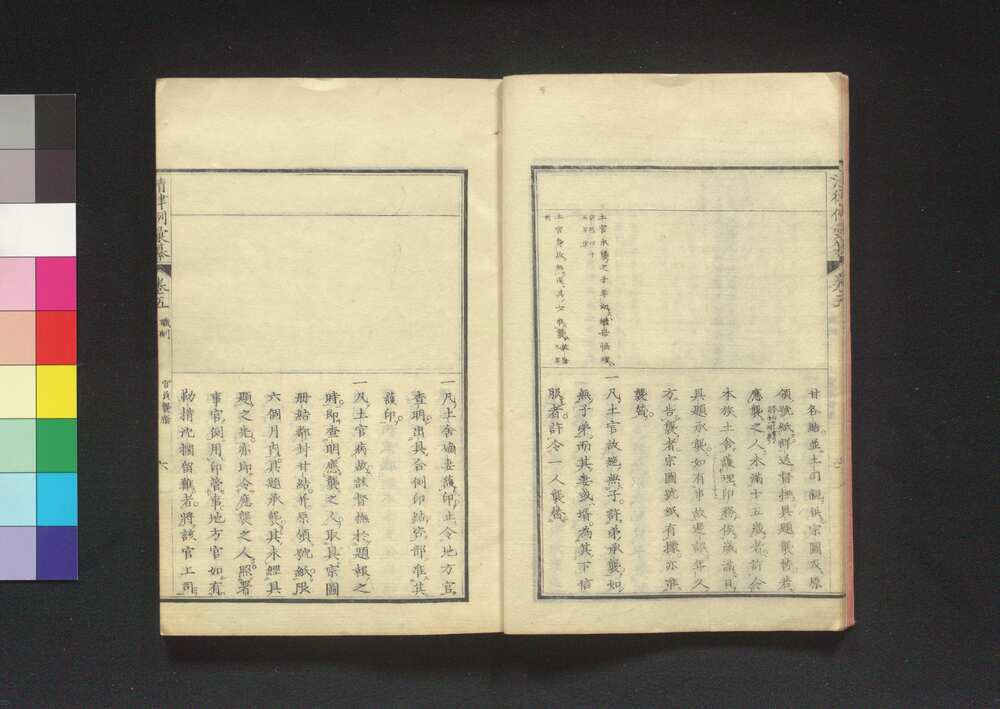 甘各結並土司親供宗圖及原
領號紙詳送督撫具題襲替若
應襲之人未滿十五歲者許令
本族土舍護理印務俟歲滿日
具題承襲如有事故遲誤年久
方告襲者宗圖號紙有據亦准
襲替
一凡土官故絕無子許弟承襲如
無子弟而其妻或壻為其下信
服者許令一人襲替
土官承襲之子
一凡土舍嫡妻護印止令地方官
查明出具合例印結咨部准其
護印
一凡土官病故該督撫於題報之
時即查明應襲之人取具宗圖
冊結鄰封甘結并原領號紙限
六個月內具題承襲其未經具
題之先亦即令應襲之人照署
事官例用印管事地方官如有
勒掯沈擱留難者將該官上司
清律例彙纂
卷五
職制
官員襲廕
六